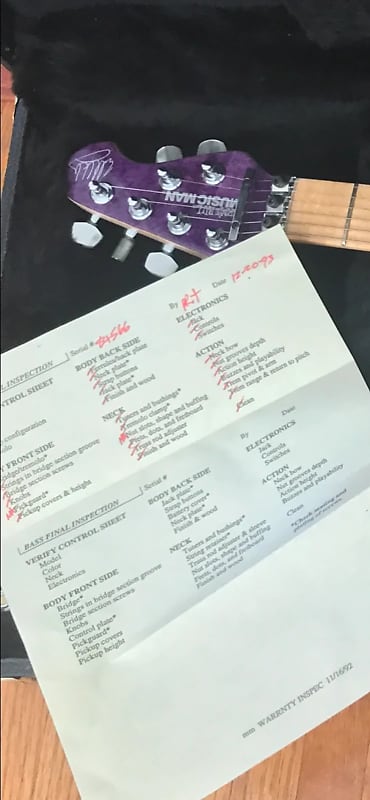 ERNIE BALL
MUSIC MAN
INSPECTION ] Serial # 84566 By Date 12-20-93
CONTROL SHEET
configuration
FRONT SIDE
Strings in bridge section groove
Bridge section screws
Knobs
Pickguard*
Pickup covers & height
BODY BACK SIDE
Jack plate*
Strap buttons
Finish and wood
NECK
Tuners and bushings*
Tremolo clamp*
Nut slots, shape and buffing
Frets, dots, and fretboard
Truss rod adjuster
Finish and wood
ELECTRONICS
Jack
Controls
Switches
ACTION
Neck bow
Nut grooves depth
Action height
Buzzes and playability
Trem pivot & arm
Trem range & return to pitch
Clean
BASS FINAL INSPECTION ] Serial # By Date
VERIFY CONTROL SHEET
Model
Color
Neck
Electronics
BODY FRONT SIDE
Bridge*
Strings in bridge section groove
Bridge section screws
Knobs
Control plate*
Pickguard*
Pickup covers
Pickup height
BODY BACK SIDE
Jack plate*
Strap buttons
Battery cover*
Neck plate*
Finish & wood
NECK
Tuners and bushings*
String retainer*
Truss rod adjuster & sleeve
Nut slots, shape and buffing
Frets, dots, and fretboard
Finish and wood
ELECTRONICS
Jack
Controls
Switches
ACTION
Neck bow
Nut grooves depth
Action height
Buzzes and playability
Clean
mm WARRNTY INSPEC 11/16/92